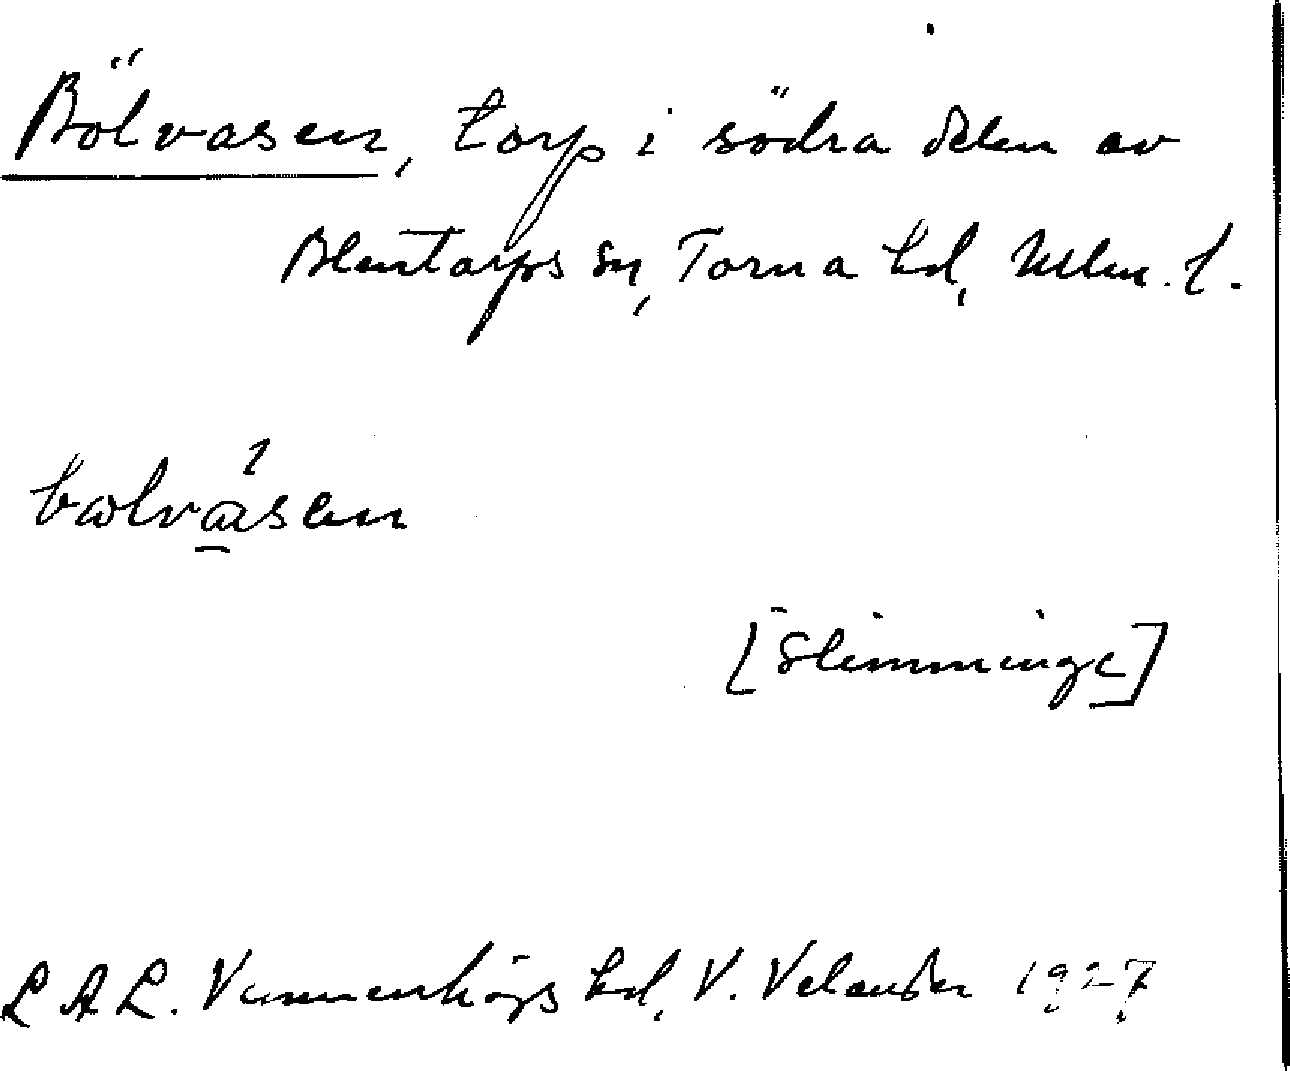 Bölvasen, torp i södra delen av
Blentarps sn, Torna hd, Mlm. l.
bolvasen
[Slimminge]
L A L. Vemmenhögs hd, V. Velander 1927